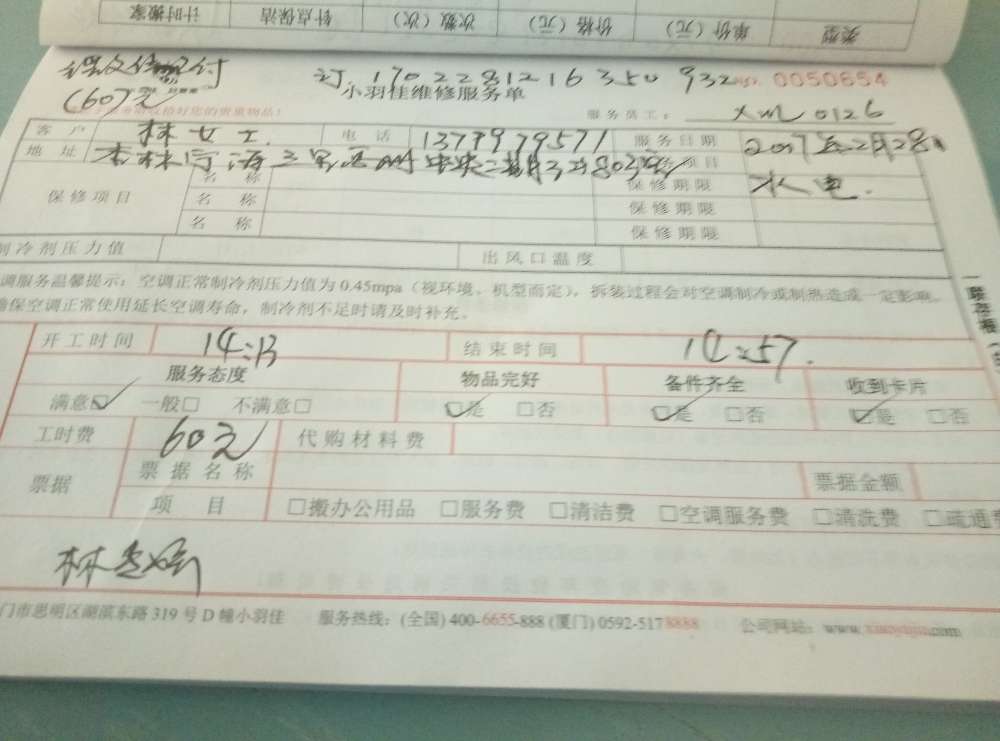 类型 单价（元） 价格（元） 次数（次） 针点保洁 计时搬家
微信支付
订 170228121216350932 No. 0050654
(60)元
小羽佳维修服务单
服务员工： XM 0126
客户 林女士 电话 13799795 71 服务日期 2017年2月28日
地址
名称 保修期限 水电
保修项目 名称 保修期限
名称 保修期限
制冷剂压力值 出风口温度
调服务温馨提示：空调正常制冷剂压力值为0.45mpa（视环境、机型而定），拆装过程会对空调制冷或制热造成一定影响。
确保空调正常使用延长空调寿命，制冷剂不足时请及时补充。
开工时间 14:13 结束时间 14:57
服务态度 物品完好 备件齐全 收到卡片
满意☑ 一般□ 不满意□ ☑是 □否 ☑是 □否 ☑是 □否
工时费 60元 代购材料费
票据 票据名称 票据金额
项目 □搬办公用品 □服务费 □清洁费 □空调服务费 □清洗费 □疏通费
门市思明区湖滨东路319号D幢小羽佳 服务热线：(全国) 400-6655-888 (厦门) 0592-5178888 公司网站：www.xiaoyujia.com